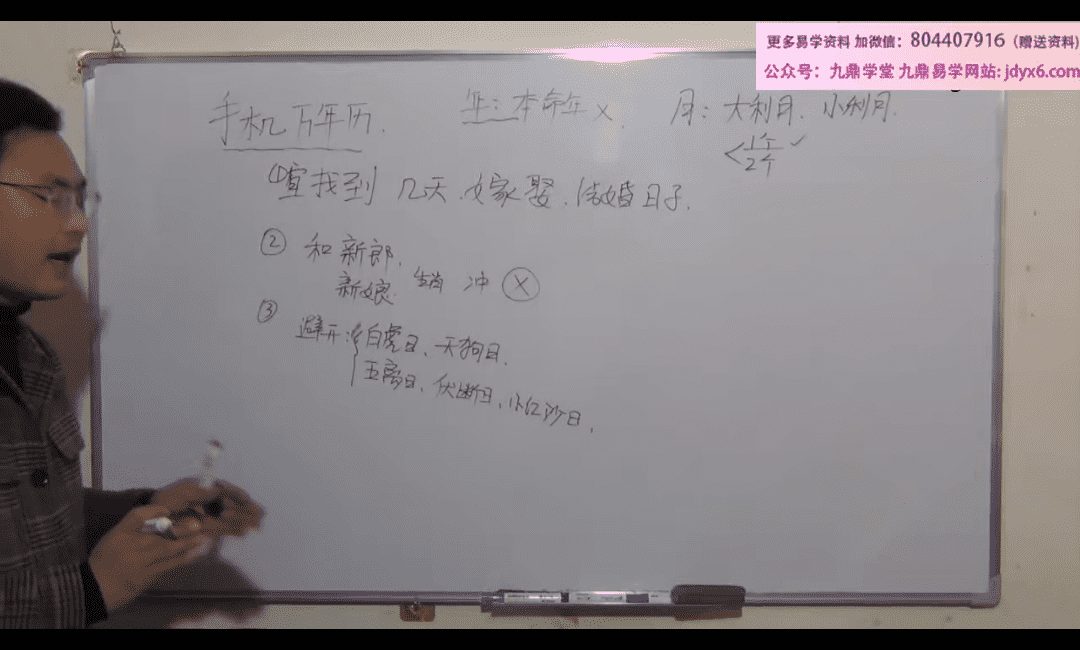 更多易学资料 加微信：804407916（赠送资料）
公众号：九鼎学堂 九鼎易学网站: jdyx6.com
手机万年历. 年：本命年 ×. 月：大利月. 小利月.
<1个 ✓
2个
① 查找到 几天. 嫁娶. 结婚日子.
② 和新郎.
新娘. 生肖 冲 ⓧ
③ 避开：{白虎日、天狗日.
五离日、伏断日、小红沙日.